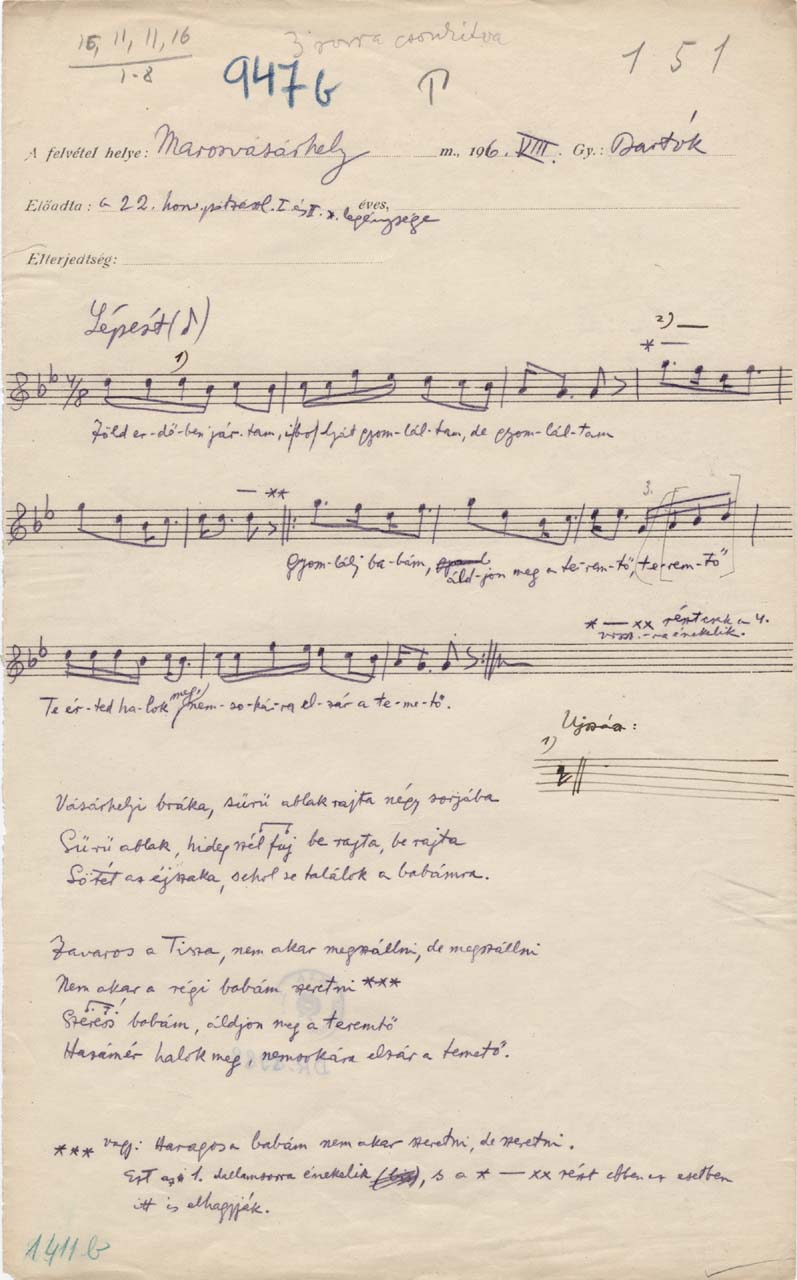 15, 11, 11, 16
1-8
3 sorra csonkitva
947 b
T
151
A felvétel helye: Marosvásárhely m., 1916. VIII. Gy.: Bartók
Előadta: a 22. honv. I és II. legénysége éves,
Elterjedtség:
Lépést (♪)
1)
2)
*
4/8
Zöld er-dő-ben jár-tam, ibolyát gyom-lál-tam, de gyom-lál-tam
**
3.
Gyom-lálj ba-bám, áld-jon meg a te-rem-tő, te-rem-tő
* — xx részt csak a 4.
vissz.-ra éneklik.
Te ér-ted ha-lok meg, nem-so-ká-ra el-zár a te-me-tő.
Ujszász:
1)
Vásárhelyi bráka, sürü ablak rajta négy sorjába
Sürü ablak, hideg szél fuj be rajta, be rajta
Sötét az éjszaka, sehol se találok a babámra.
Zavaros a Tisza, nem akar megszállni, de megszállni
Nem akar a régi babám szeretni ***
Szeress babám, áldjon meg a teremtő
Hazámér halok meg, nemsokára elzár a temető.
*** vagy: Haragos a babám nem akar szeretni, de szeretni.
Ezt az 1. dallamsorra éneklik, s a * — xx részt ebben az esetben
itt is elhagyják.
1411 b